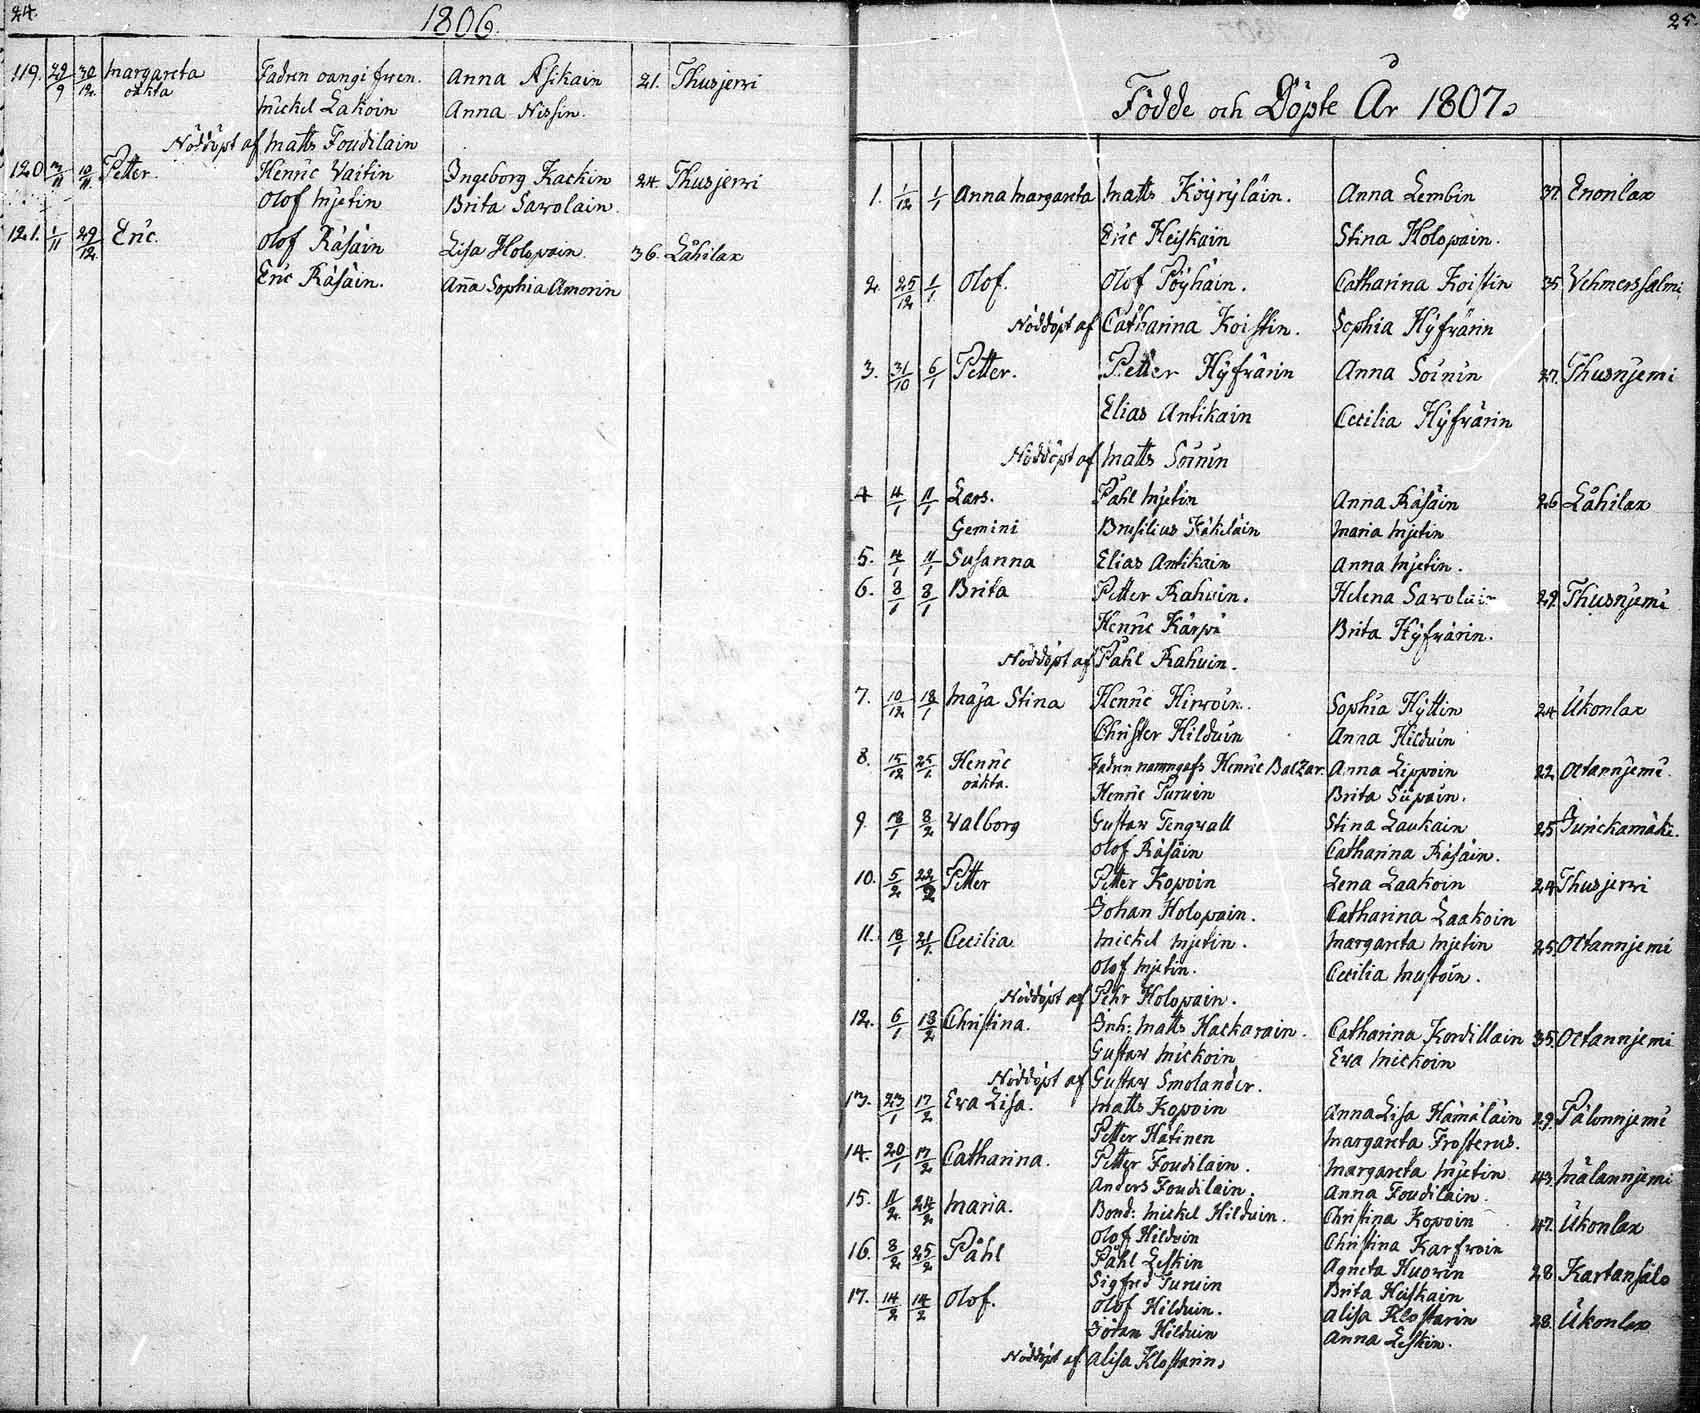 24.
1806.
119. 29/9 30/12 Margareta Fadren oangifven. Anna Asikain 21. Thusjerwi
oäkta Mickel Lakoin Anna Nissin.
Nöddöpt af Matts Foudilain
120 3/11 10/11 Petter. Henric Vaitin Ingeborg Kackin 24. Thusjerwi
Olof Mjetin Brita Sawolain.
121. 1/11 29/12 Eric. Olof Räsäin Lisa Holopain. 36. Låhilax
Eric Räsäin. Anna Sophia Amorin
25.
Födde och Döpte År 1807.
1. 1/12 1/1 Anna Margareta Matts Köyryläin. Anna Lembin 37. Enonlax
Eric Heiskain Stina Holopain.
2. 25/12 1/1 Olof. Olof Pöyhäin. Catharina Koistin 35 Vehmerssalmi
Nöddöpt af Catharina Koistin. Sophia Hyfvärin
3. 31/10 6/1 Petter. Petter Hyfvärin Anna Soinin 27. Thusnjemi
Elias Antikain Cecilia Hyfvärin
Nöddöpt af Matts Soinin
4 4/1 11/1 Lars. Påhl Mjetin Anna Räsäin 26 Låhilax
Gemini Brusilius Käkeläin Maria Mjetin
5. 4/1 11/1 Susanna Elias Antikain Anna Mjetin.
6. 8/1 8/1 Brita Petter Rahuin. Helena Sawolain 29. Thusnjemi
Henric Kärpä Brita Hyfvärin.
Nöddöpt af Påhl Rahuin.
7. 10/12 18/1 Maja Stina Henric Hirvoin. Sophia Hyttin 24 Ukonlax
Christer Hilduin Anna Hilduin
8. 15/12 25/1 Henric Fadren namngafs Henric Balzar. Anna Lippoin 22 Octannjemi.
oäkta. Henric Turuin Brita Siipain.
9. 18/1 8/2 Valborg Gustav Tengvall Stina Laukain 25 Junickamäki.
Olof Räsäin Catharina Räsäin.
10. 5/2 22/2 Petter Petter Kopoin Lena Laakoin 24 Thusjerwi
Johan Holopain. Catharina Laakoin
11. 18/1 21/1. Cecilia Mickel Mjetin. Margareta Mjetin 25. Octannjemi
Olof Mjetin. Cecilia Mustoin.
Nöddöpt af Pehr Holopain.
12. 6/1 18/2 Christina. Inh: Matts Hackarain. Catharina Kordillain 35. Octannjemi
Gustav Mickoin Eva Mickoin
Nöddöpt af Gustav Smolander.
13. 23/1 17/2 Eva Lisa. Matts Kopoin Anna Lisa Hämäläin 29. Pälonnjemi
Petter Hätinen Margareta Frosterus.
14. 20/1 17/2 Catharina. Petter Foudilain. Margareta Mjetin 43. Mälannjemi
Anders Foudilain. Anna Foudilain.
15. 11/2 24/2 Maria. Bond: Mickel Hilduin. Christina Kopoin 47. Ukonlax
Olof Hilduin Christina Karfvoin
16. 8/2 25/2 Påhl Påhl Leskin Agneta Huovin 28 Kartansalo
Sigfred Turuin Brita Heiskain
17. 14/2 14/2 Olof. Olof Hilduin. Alisa Klostarin 28. Ukonlax
Jöran Hilduin Anna Leskin.
Nöddöpt af Alisa Klostarin.